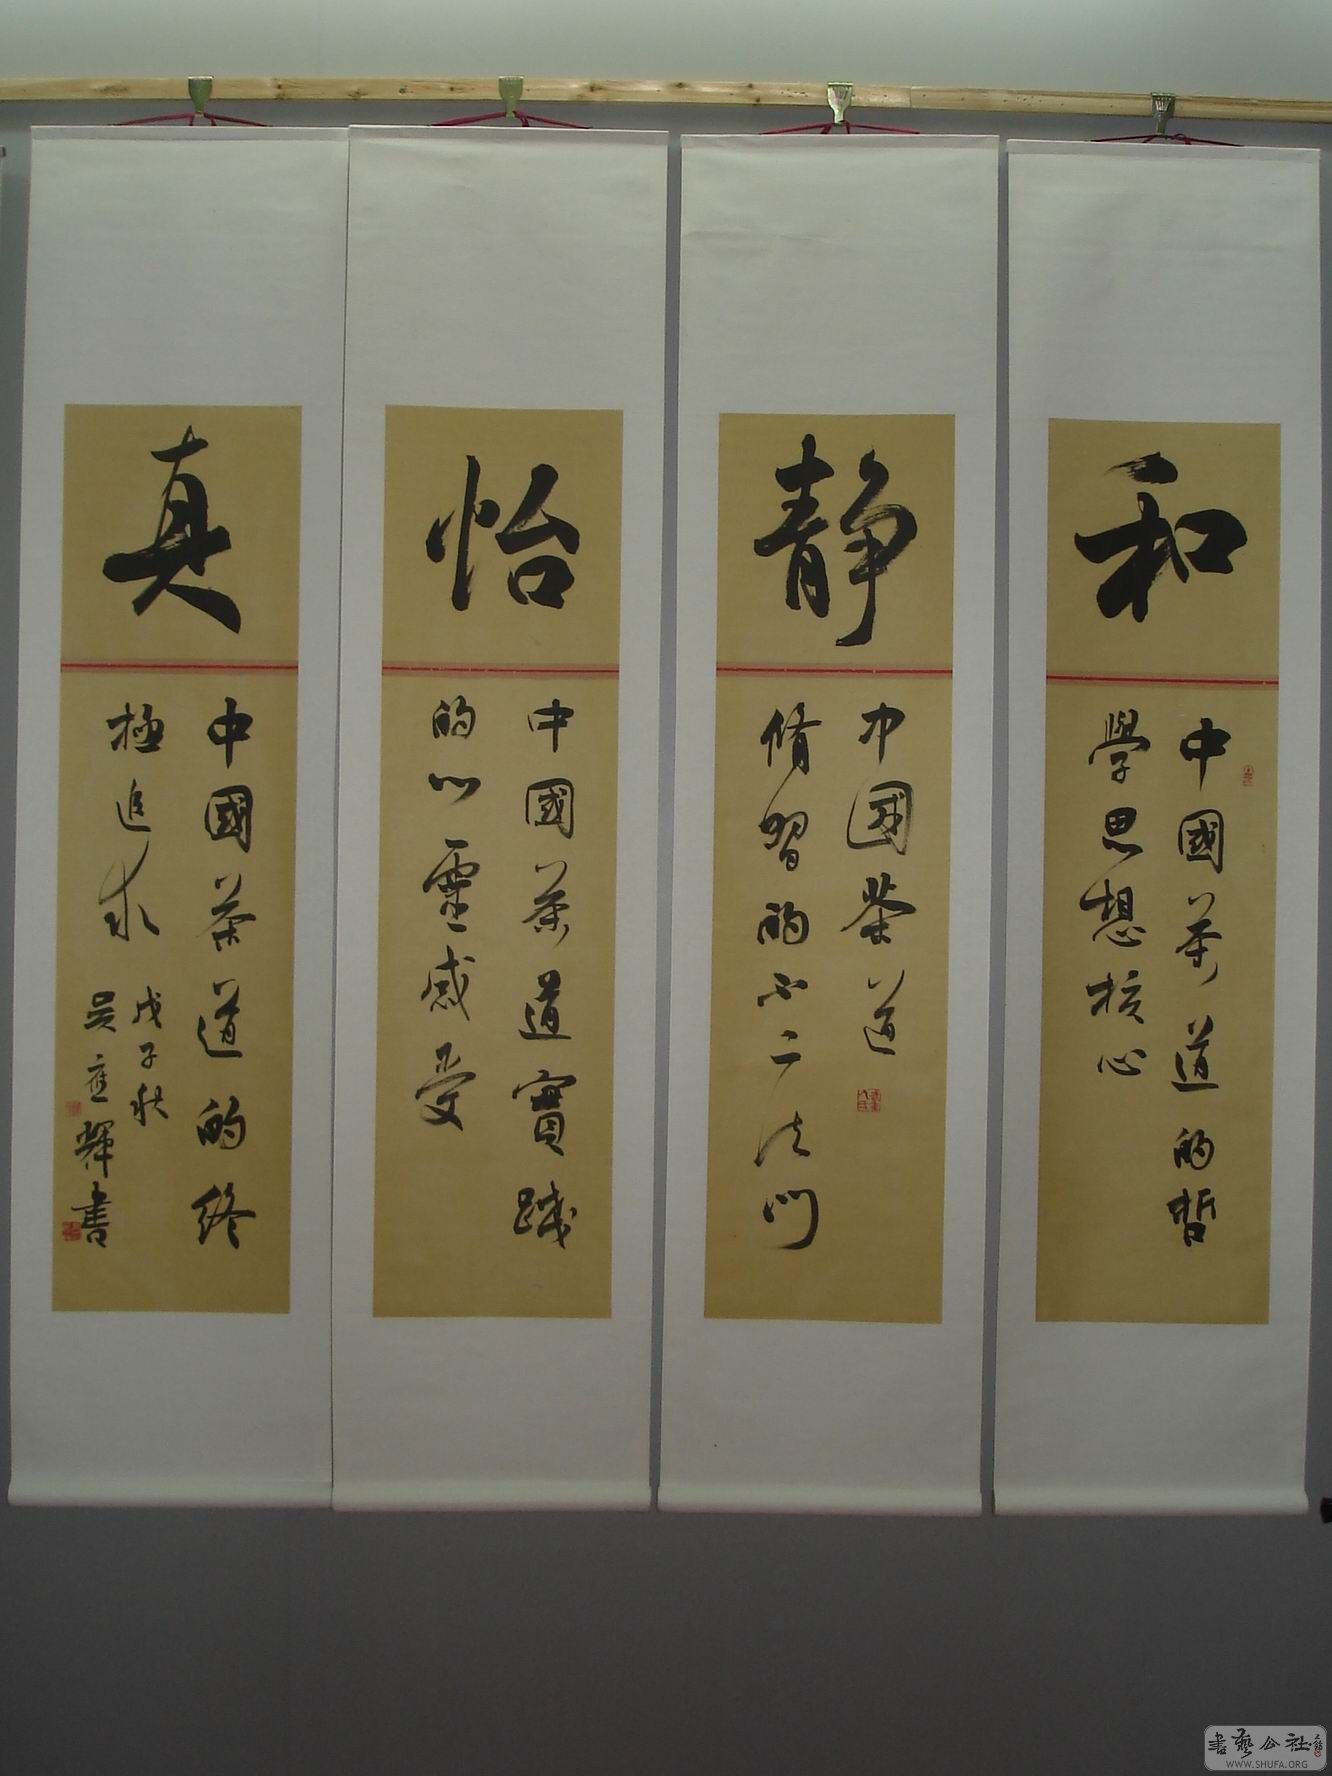 和
中國茶道的哲
學思想核心
静
中国茶道
脩習的不二法門
怡
中國茶道實踐
的心靈感受
真
中國茶道的終
極追求
戊子秋
吴應輝書
書藝公社
WWW.SHUFA.ORG